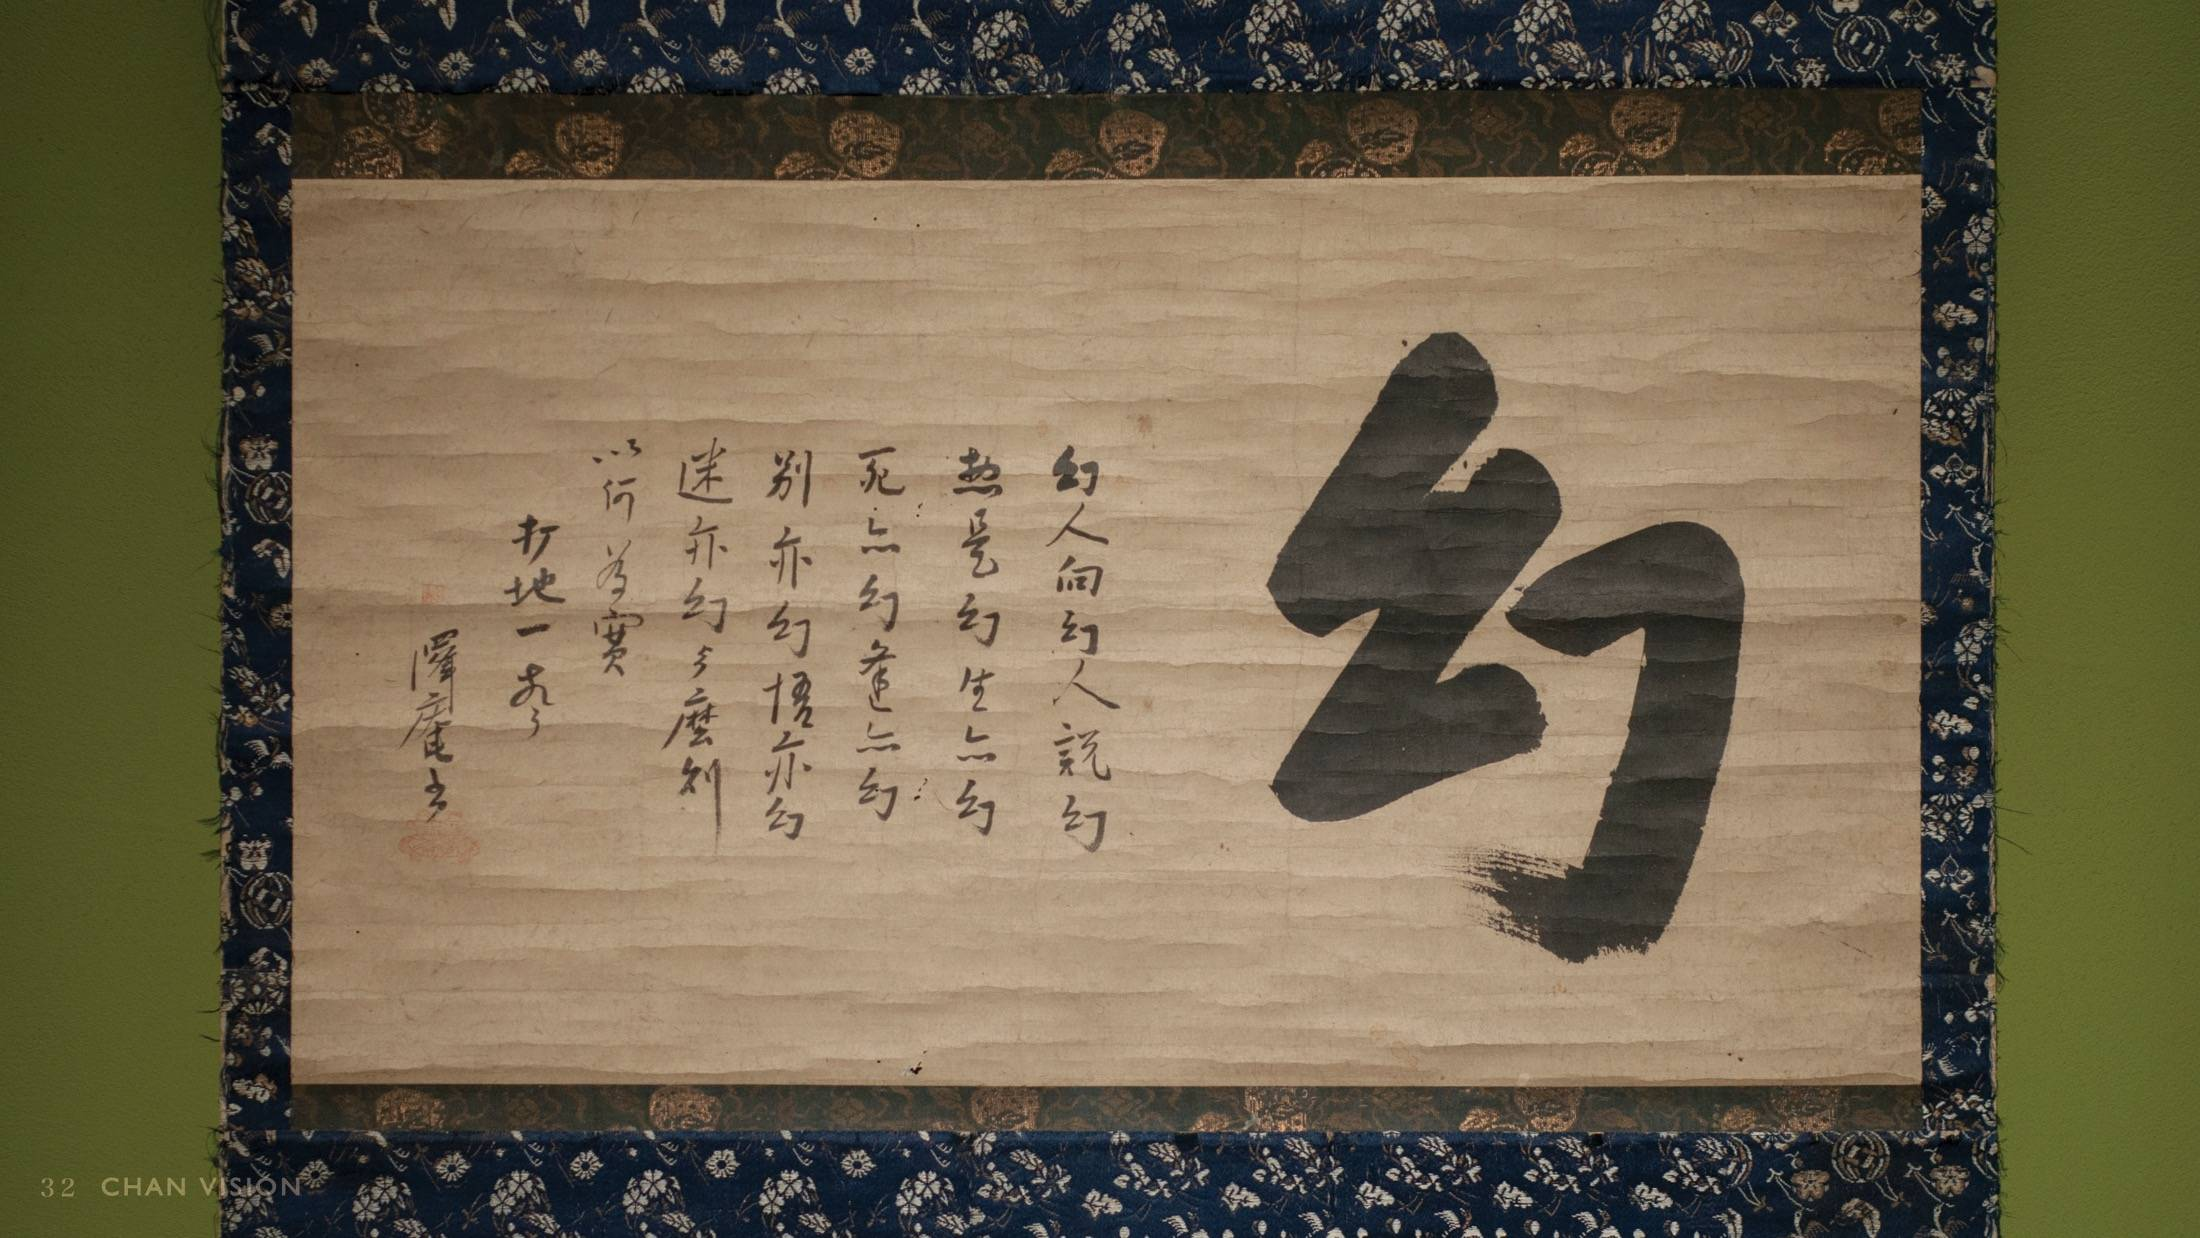 幻
幻人向幻人説幻
愁是幻生亦幻
死亦幻逢亦幻
別亦幻悟亦幻
迷亦幻今麼則
以何為實
打地一
澤庵書
32 CHAN VISION